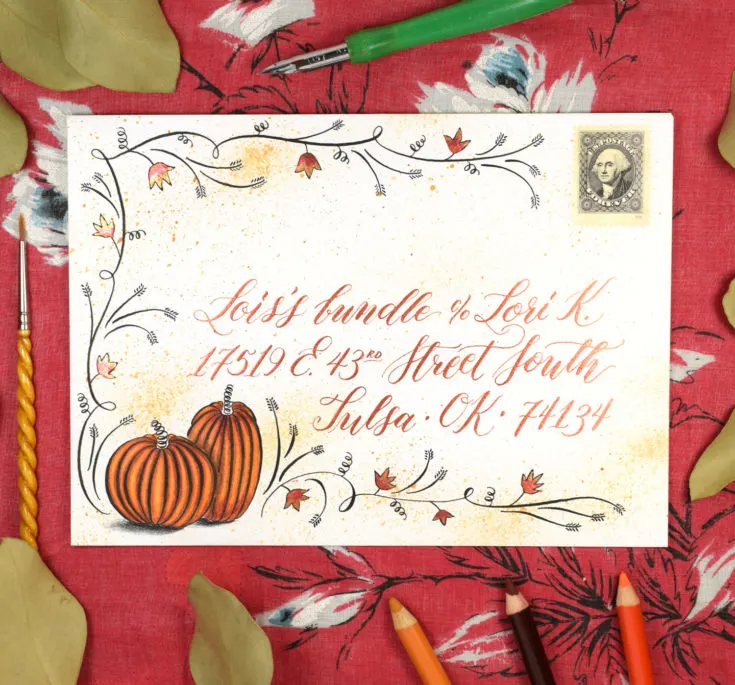 Lois's bundle c/o Lori K.
17519 E. 43RD Street South
Tulsa · OK · 74134